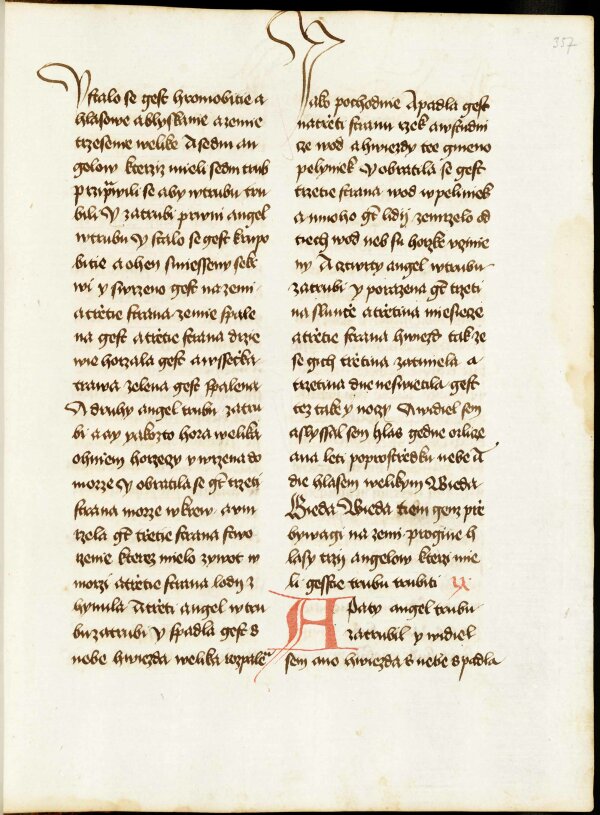 357
Y stalo se gest hromobitie a
hlasowe a blyskanie a zemie
trzesenie welike A sedm an
gelow kterziz mieli sedm trub
prziprawili se aby wtrubu tru
bili Y zatrubi prwni angel
wtrubu Y stalo se gest krupo
bitie a ohen smiesseny sek
rwi y swrzeno gest na zemi
a trzetie strana zemie spale
na gest a trzetie strana drzie
wie horzala gest a wssecka
trawa zelena gest spalena
A druhy angel trubu zatru
bi a ay yakozto hora welika
ohniem horzezy y wrzena do
morze Y obratila se gt trzeti
strana morze w krew a um
rzela gt trzetie strana stwo
rzenie kterez mielo zywot w
morzi a trzetie strana lodij z
hynula A trzeti angel w tru
bu zatrubi y spadla gest s
nebe hwiezda welika rozpale
Jako pochodnie A padla gest
na trzeti stranu rzek a w studni
cze wod a hwiezdy tee gmeno
pelyniek Y obratila se gest
trzetie strana wod w peliniek
a mnoho gt lidij zemrzelo od
tiech wod neb su horzke vczinie
ny A cztwrty angel w trubu
zatrubi y porazena gt trzeti
na slunce a trzetina miesiecze
a trzetie strana hwiezd tak ze
se gich trzetina zatmiela a
trzetina dne neswietila gest
tez take y noczy A widiel sem
a slyssal sem hlas gedne orlicze
ana leti po prostrzedku nebe A
die hlasem welikym Bieda
Bieda Bieda tiem genz prze
bywagi na zemi pro gine h
lasy trzij angelow kterzi mie
li gesstie trubu trubiti
A paty angel trubu
zatrubil y widiel
sem ano hwiezda s nebe spadla